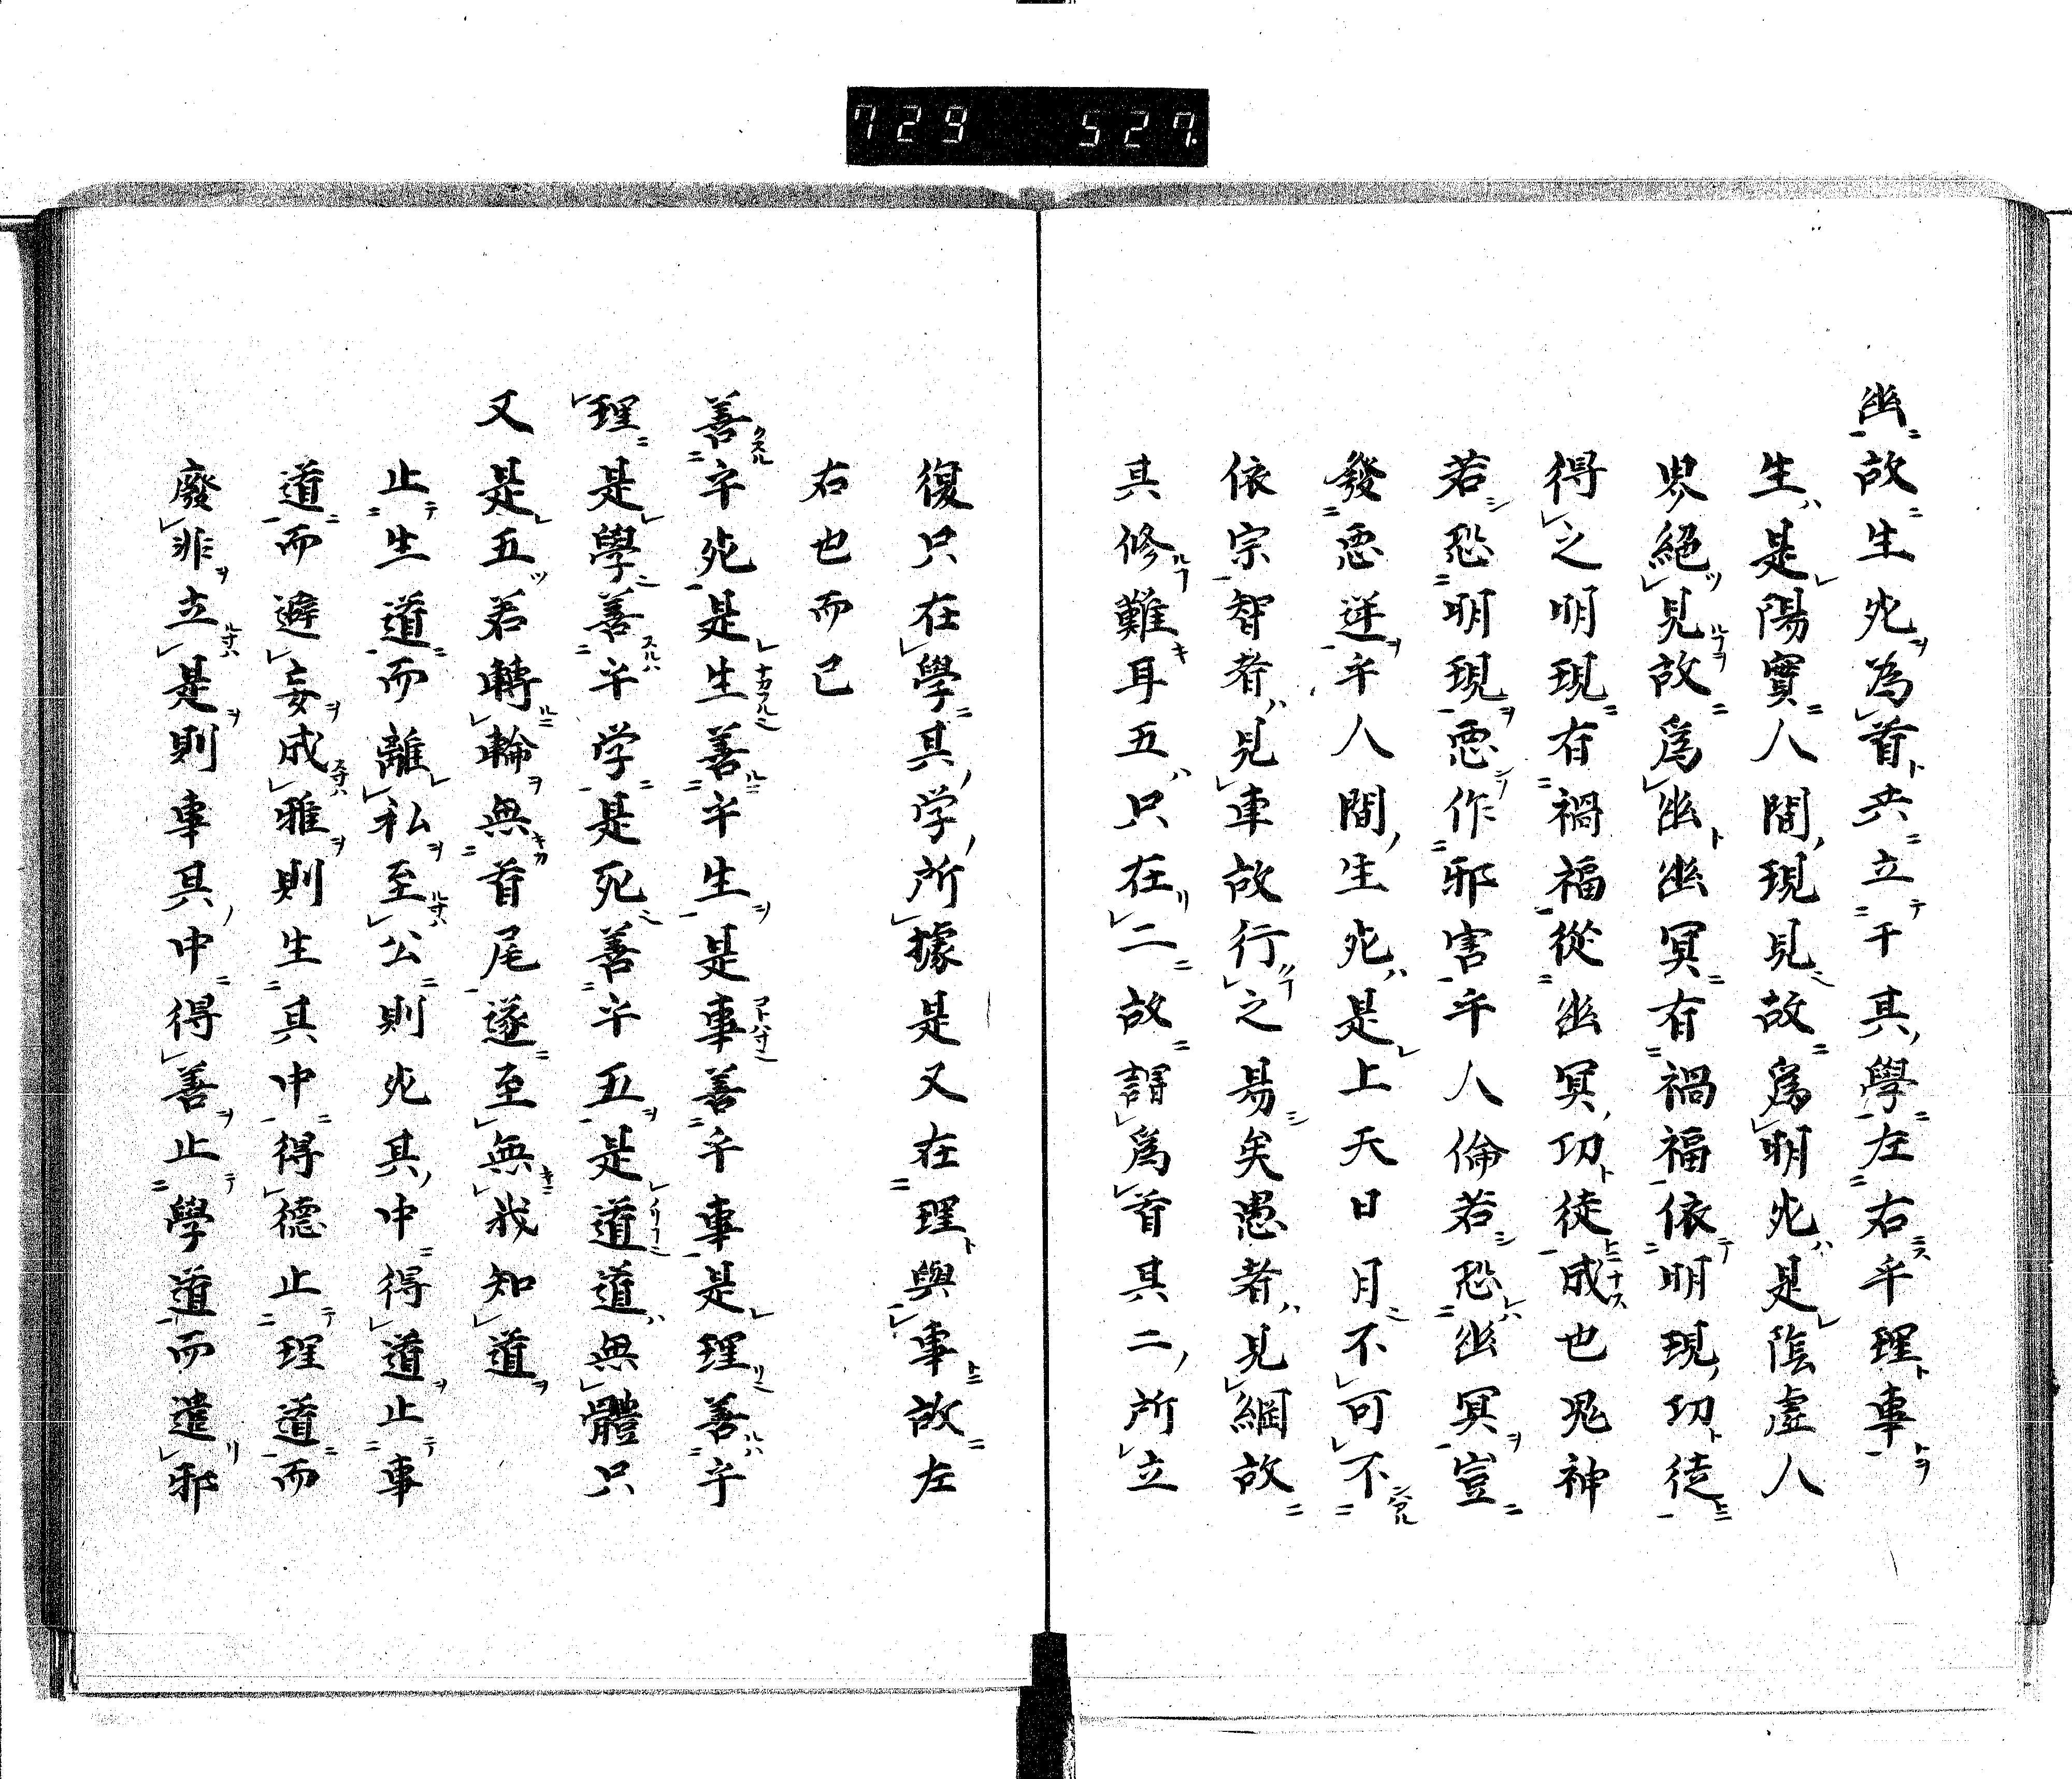 729 527
幽故生死為首共立于其學左右乎理事
生是陽實人間現見故爲明死是陰虚人
界絕見故爲幽幽冥有禍福依明現功徒
得之明現有禍福從幽冥功徒成也鬼神
若恐明現悪作邪害乎人倫若恐幽冥豈
發悪逆乎人間生死是上天日月不可不
依宗智者見車故行之易矣愚者見綱故
其修難耳五只在二故謂爲首其二所立
復只在學其学所據是又在理與事故左
右也而已
善乎死是生善乎生是事善乎事是理善乎
理是學善乎学是死善乎五是道道無體只
又是五若轉輪無首尾遂至無我知道
止生道而離私至公則死其中得道止事
道而避妄成雅則生其中得德止理道而
廢非立是則事其中得善止學道而遣邪